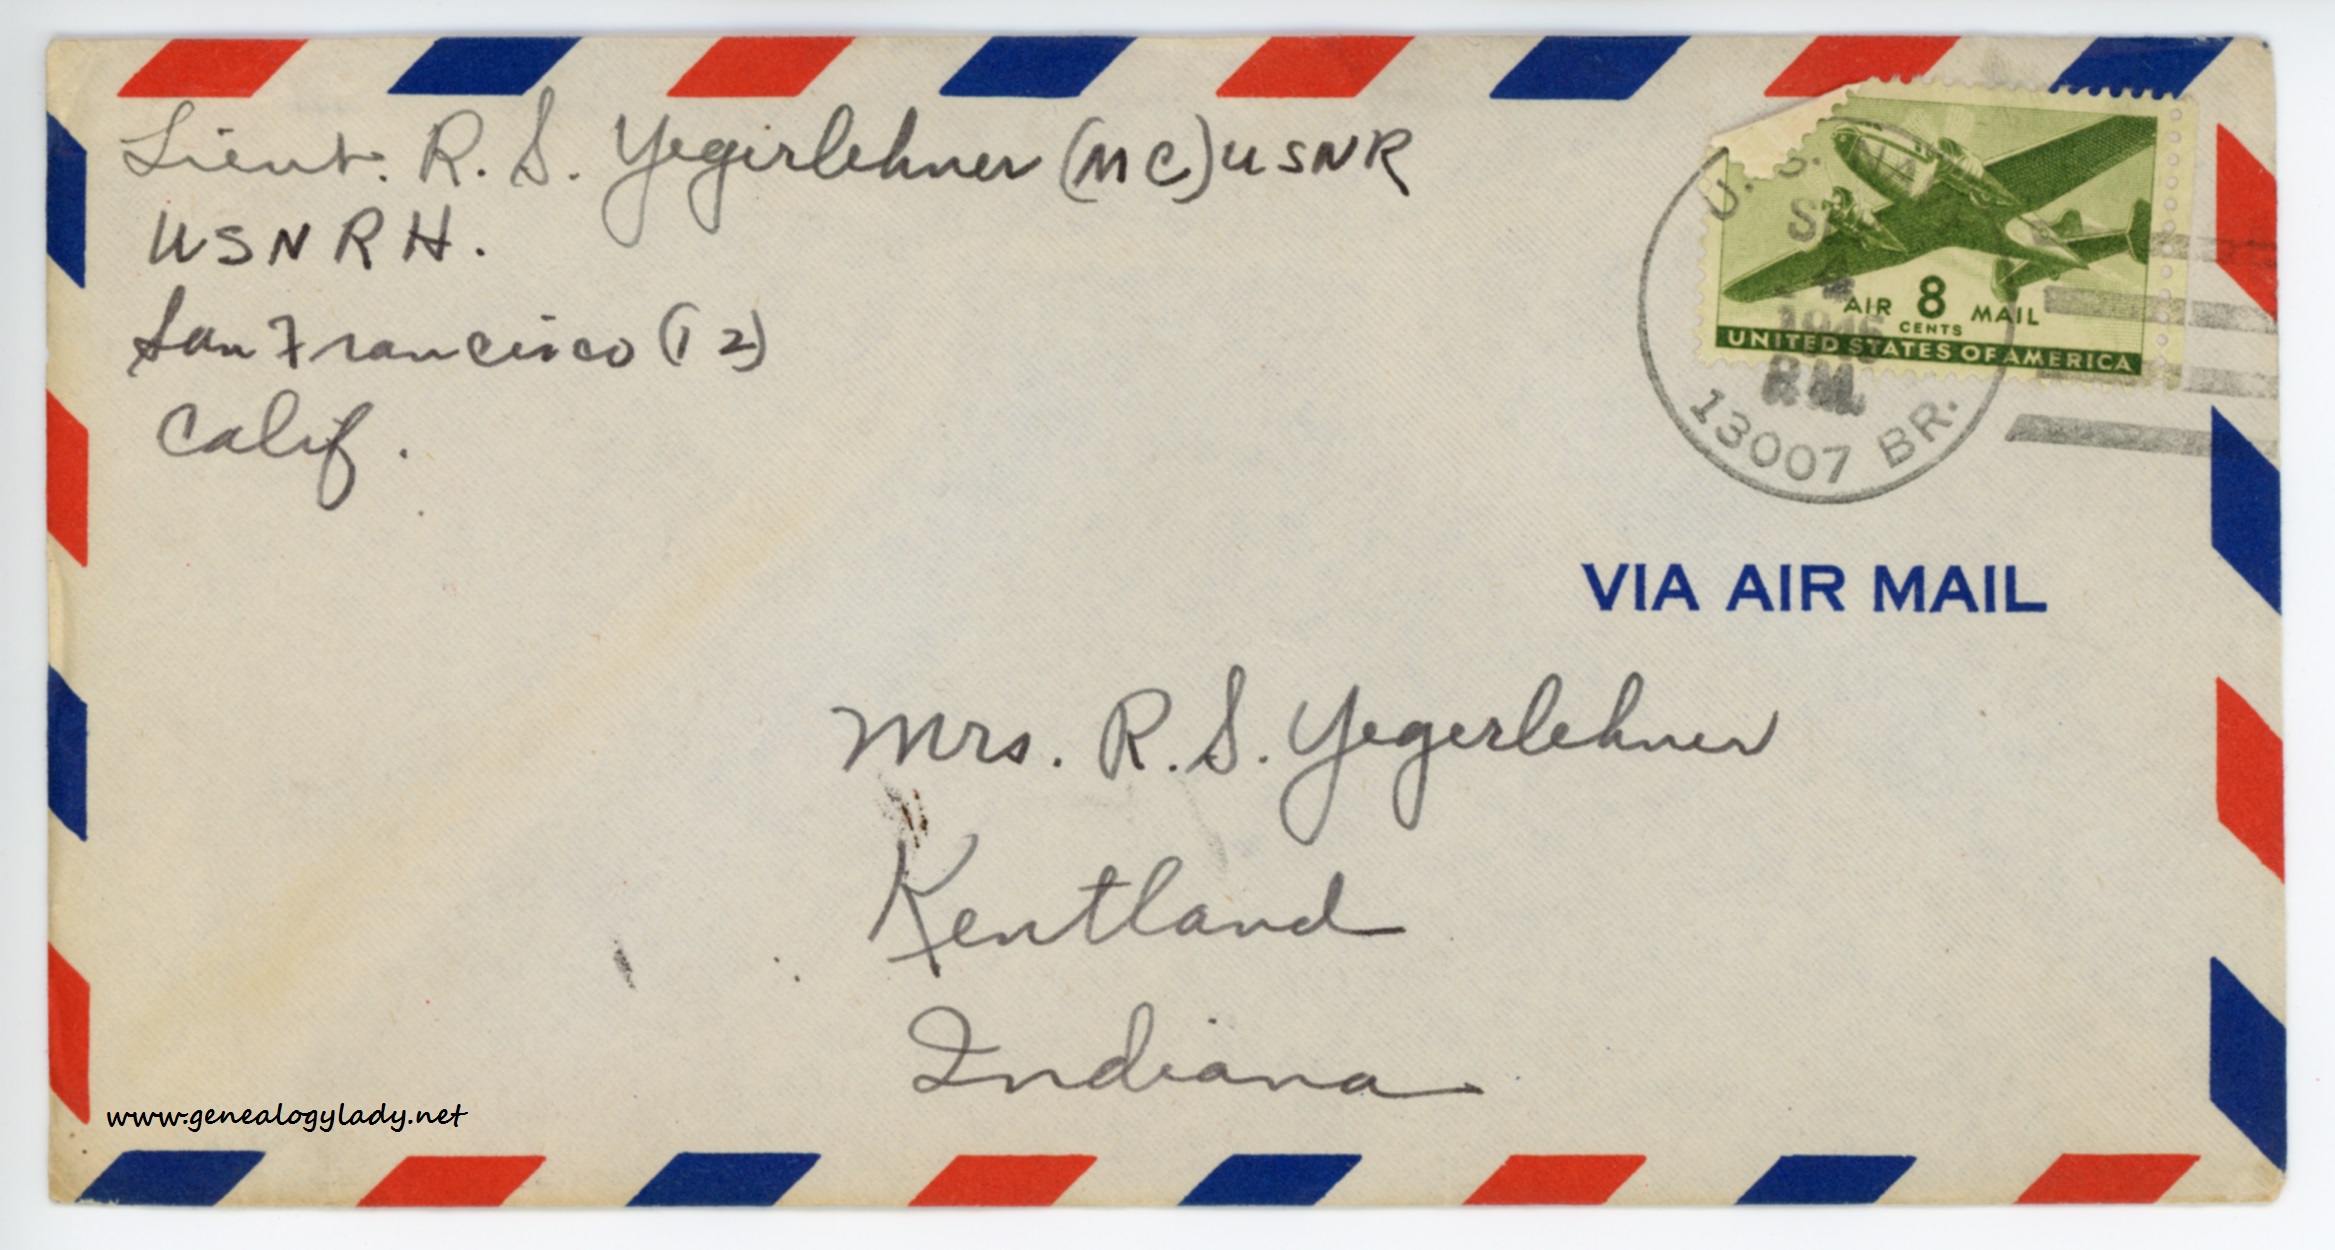 Lieut. R. S. Yegerlehner (MC) USNR
USNRH.
San Francisco (12)
Calif.
U. S.
1946
P.M.
13007 BR.
AIR 8 MAIL
CENTS
UNITED STATES OF AMERICA
VIA AIR MAIL
Mrs. R. S. Yegerlehner
Kentland
Indiana
www.genealogylady.net